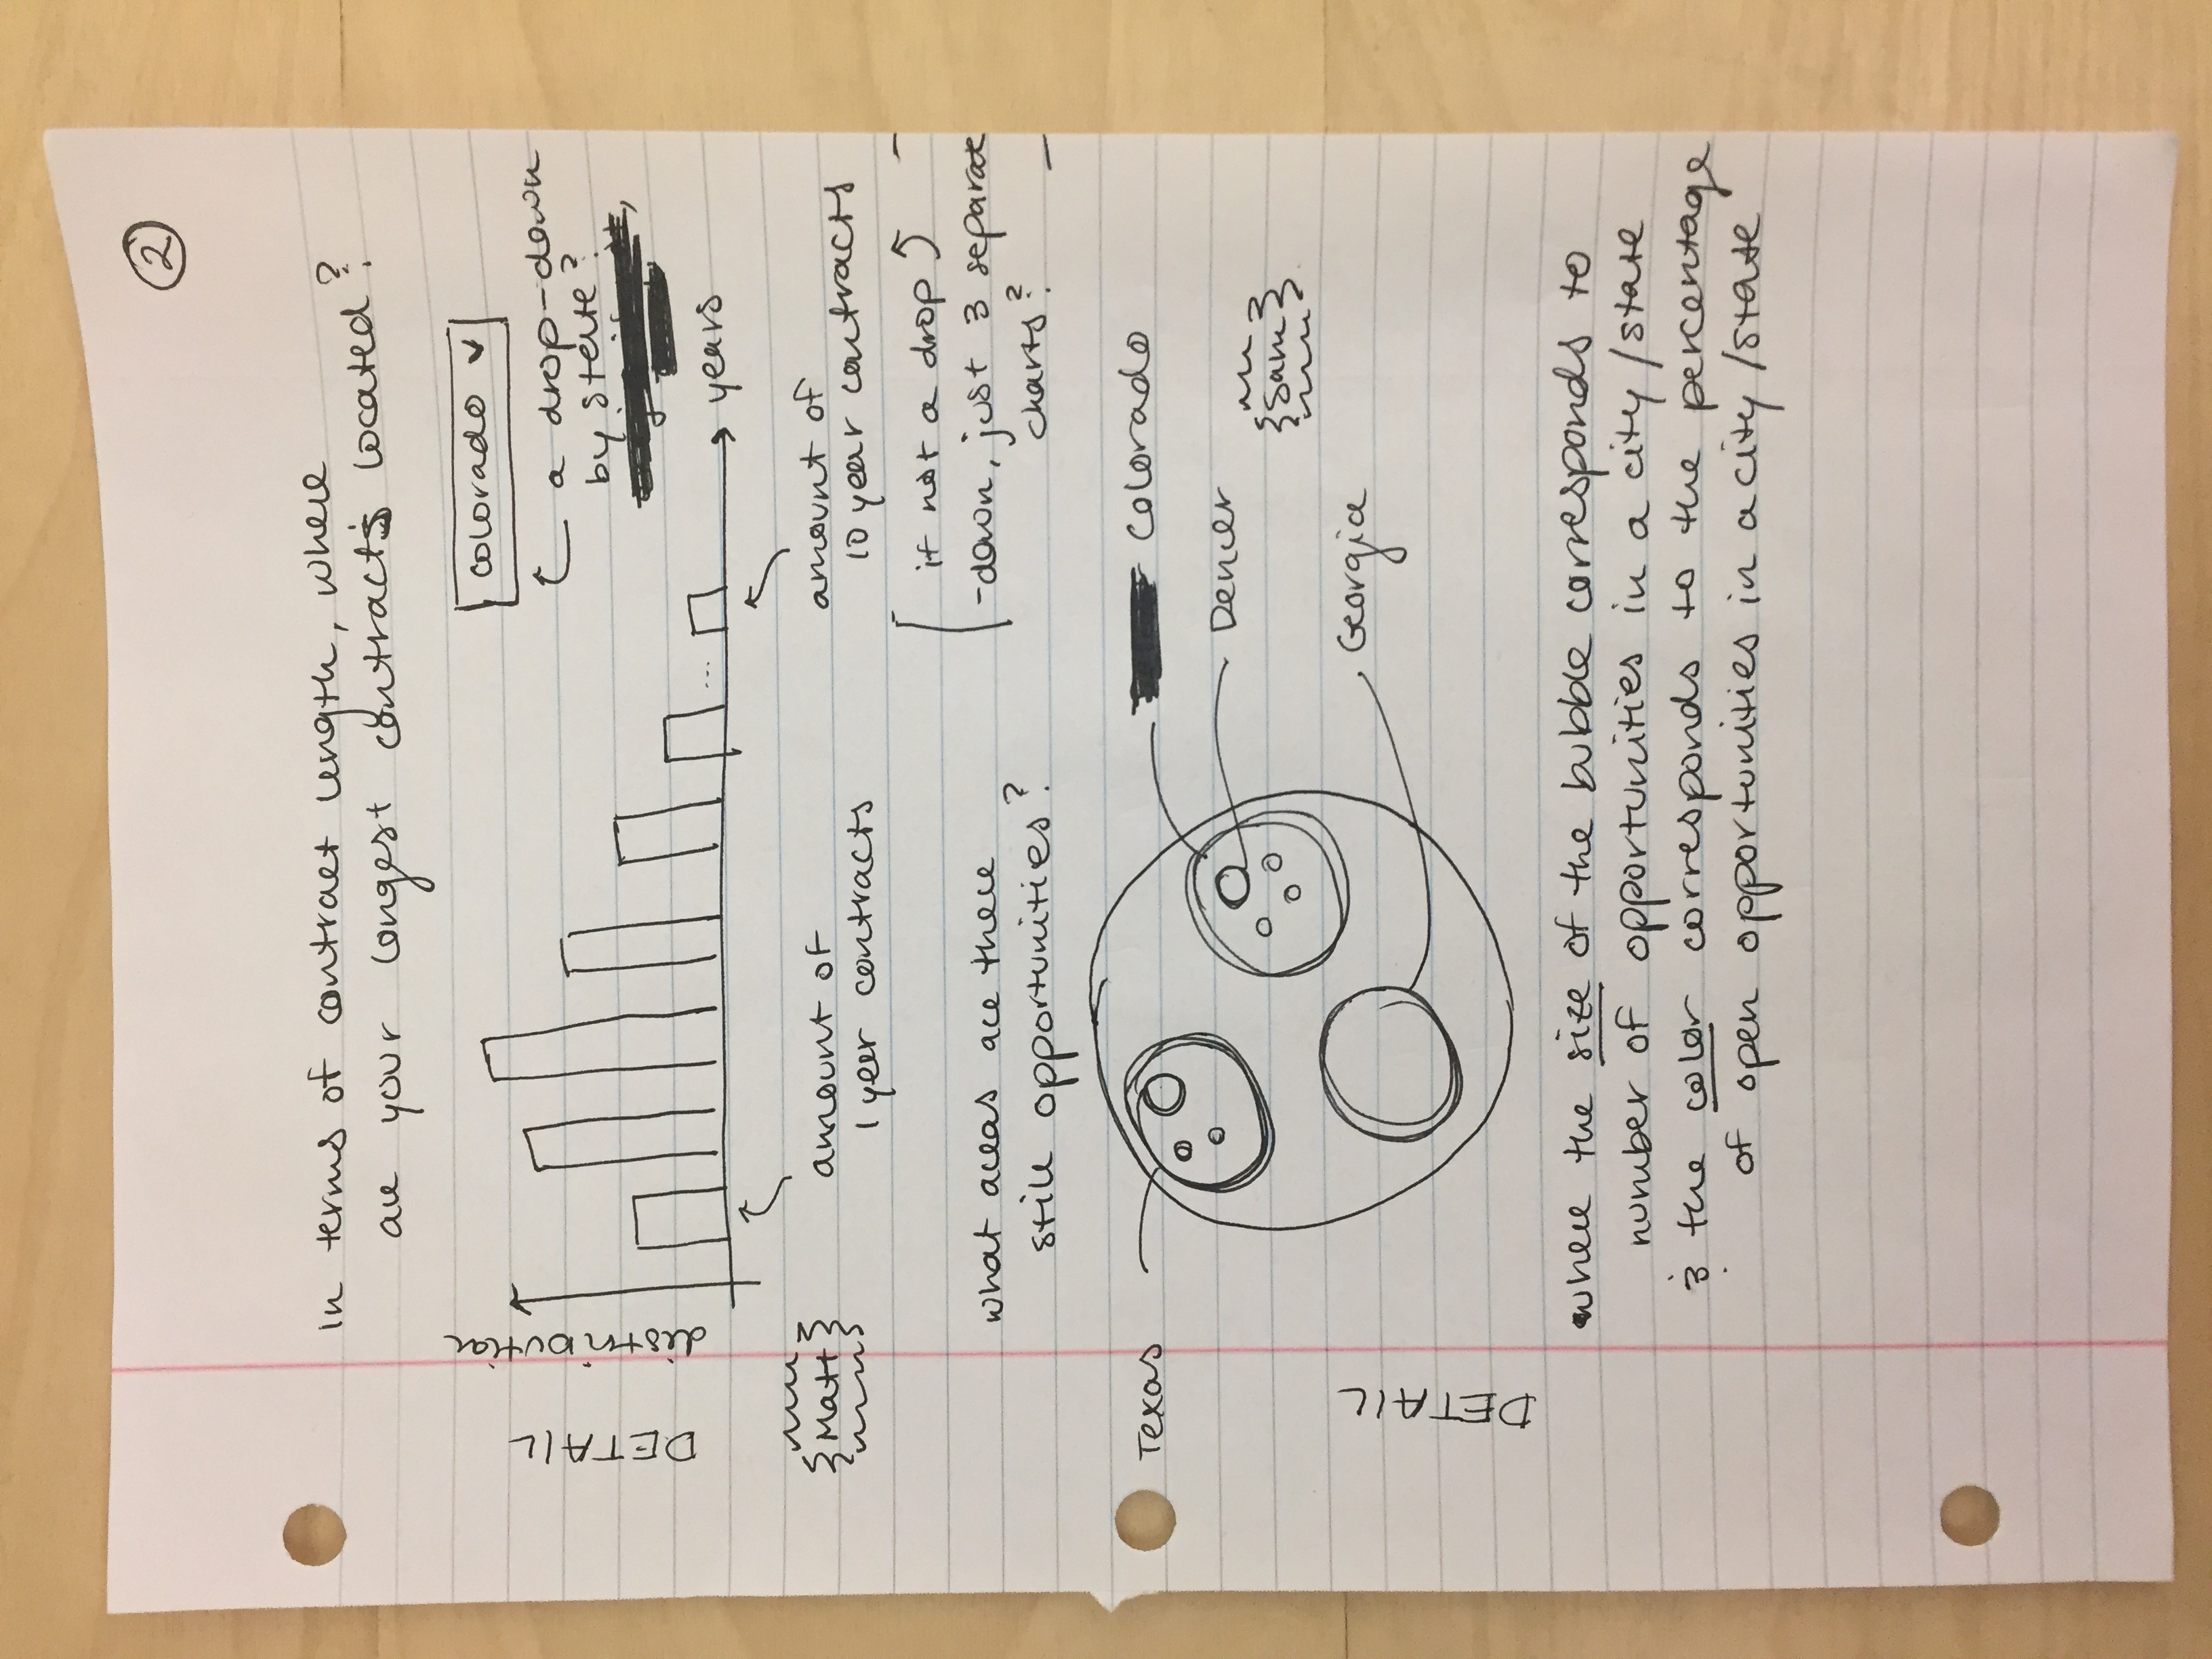 2
in terms of contract length, where
are your longest contracts located?
DETAIL
distribution
colorado
a drop-down
by state?
years
{Matt}
amount of
1 year contracts
amount of
10 year contracts
if not a drop
-down, just 3 separate
charts?
what areas are there
still opportunities?
Texas
Colorado
Denver
{Sam}
Georgia
DETAIL
where the size of the bubble corresponds to
number of opportunities in a city/state
& the color corresponds to the percentage
of open opportunities in a city/state